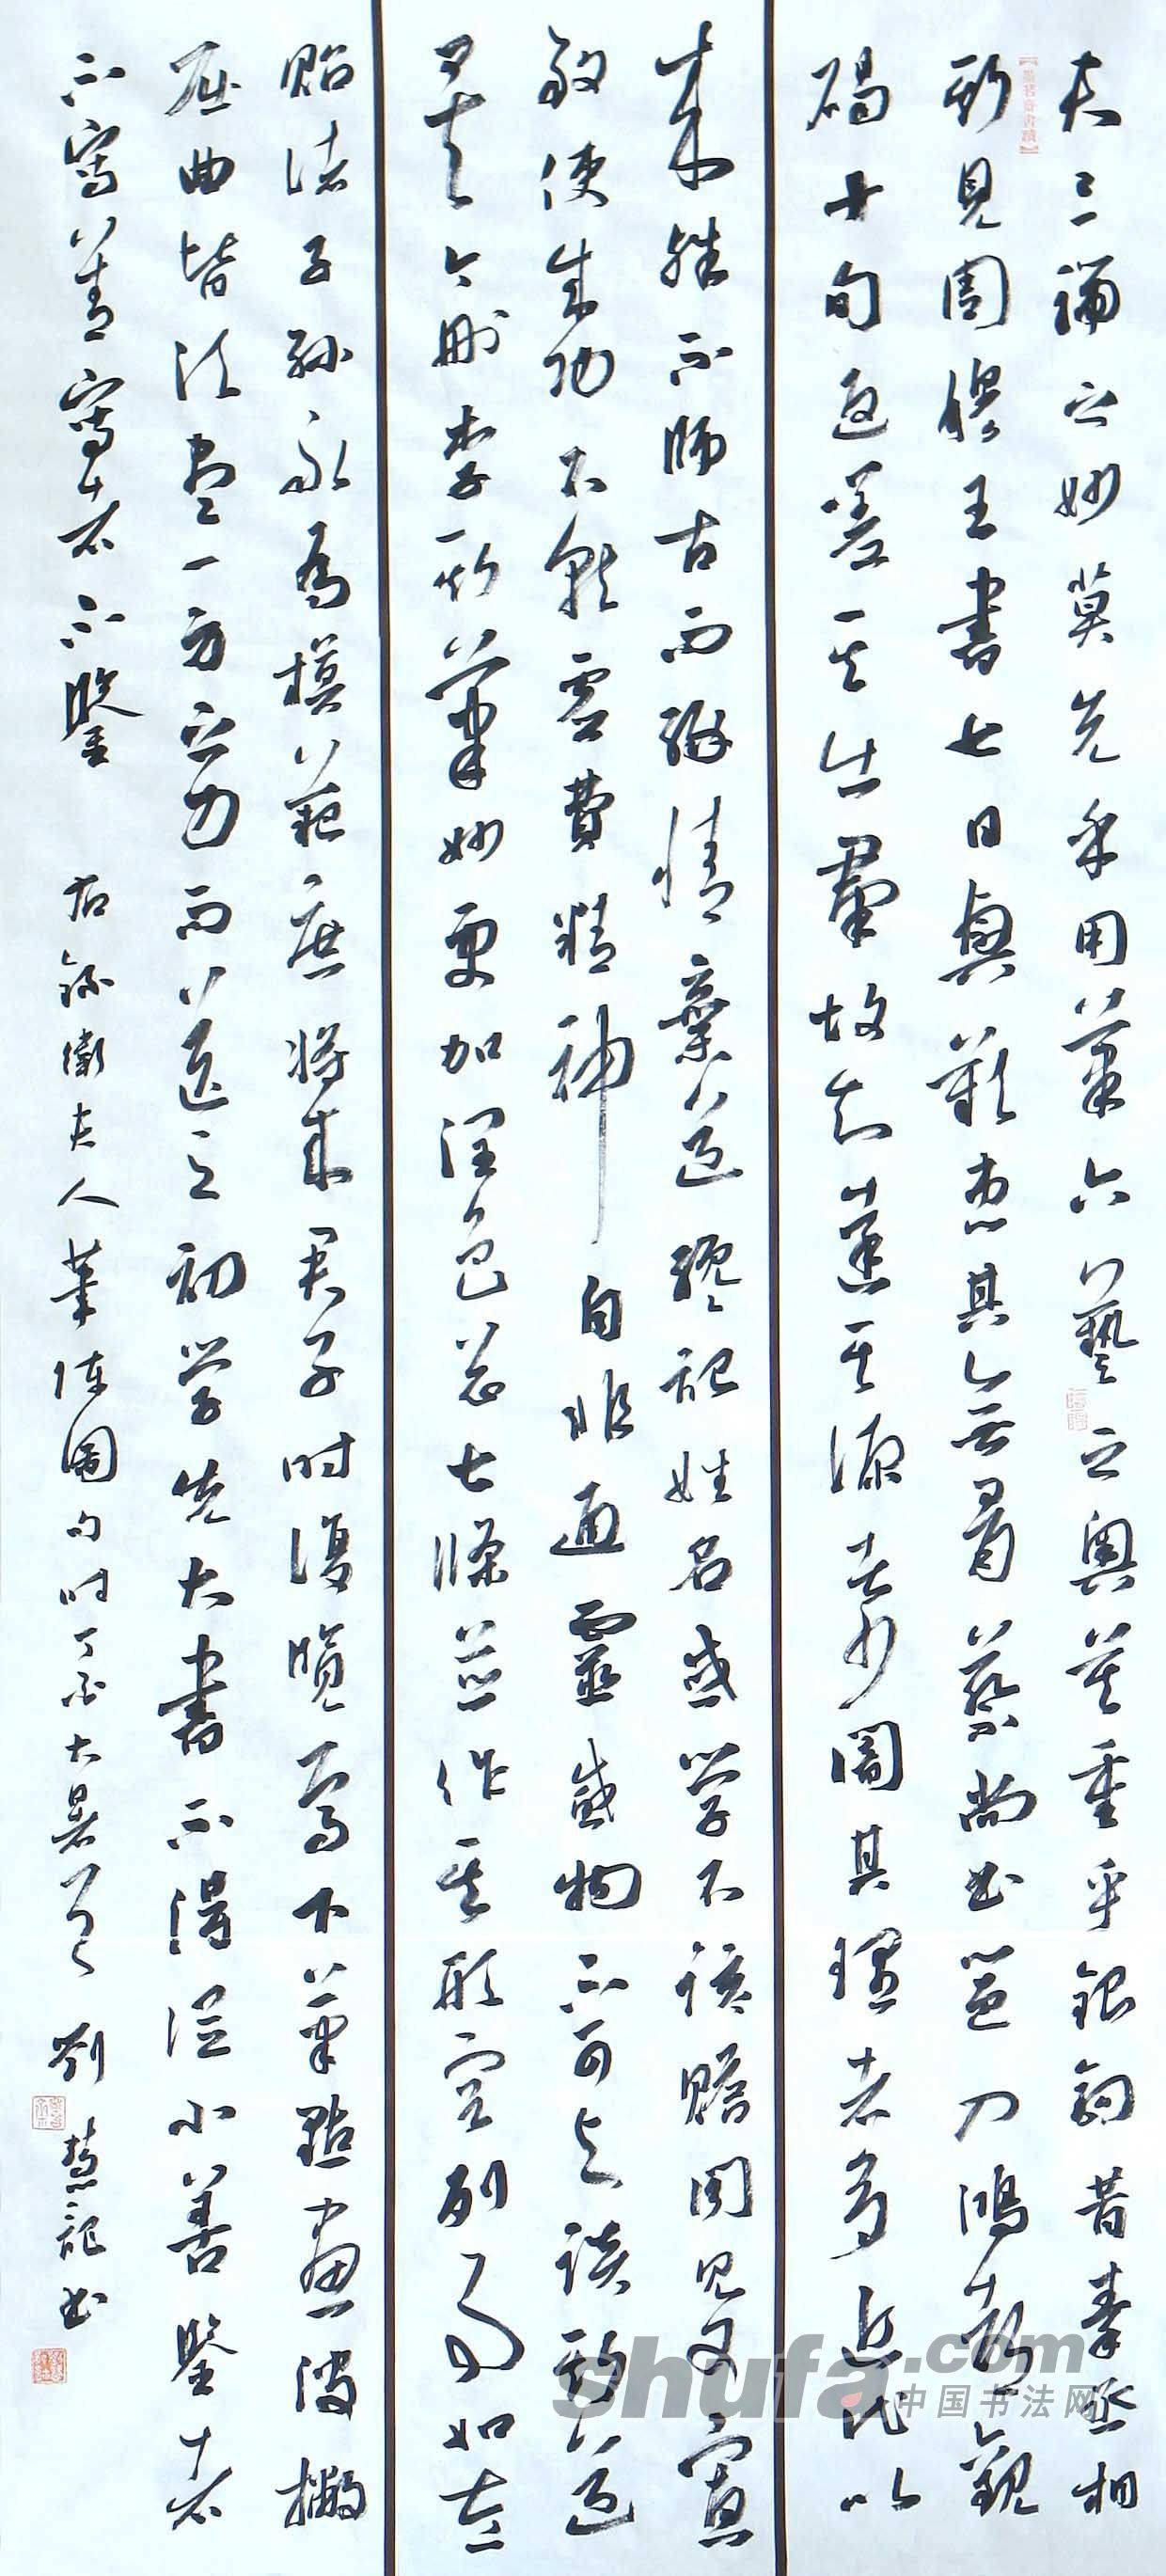 夫三端之妙莫先乎用筆六藝之奧莫重乎銀鉤昔秦丞相
斯見周穆王書七日興歎患其無骨蔡尚書邕入鴻都觀
碣十旬不返嗟其出群故知達其源者少闇其理者多近代以
來殊不師古而緣情棄道纔記姓名或學不該贍聞見又寡
致使成功不就虛費精神自非通靈感物不可與談斯道
矣今刪李斯筆妙更加潤色總七條並作其形容列事如左
貽諸子孫永為模範庶將來君子時復覽焉下筆點畫波撇
屈曲皆須盡一身之力而送之初學先大書不得從小善鑒者
不寫善寫者不鑒 右錄衛夫人筆陣圖句時丁酉大暑 劉慧龍書
shufa.com
中国书法网